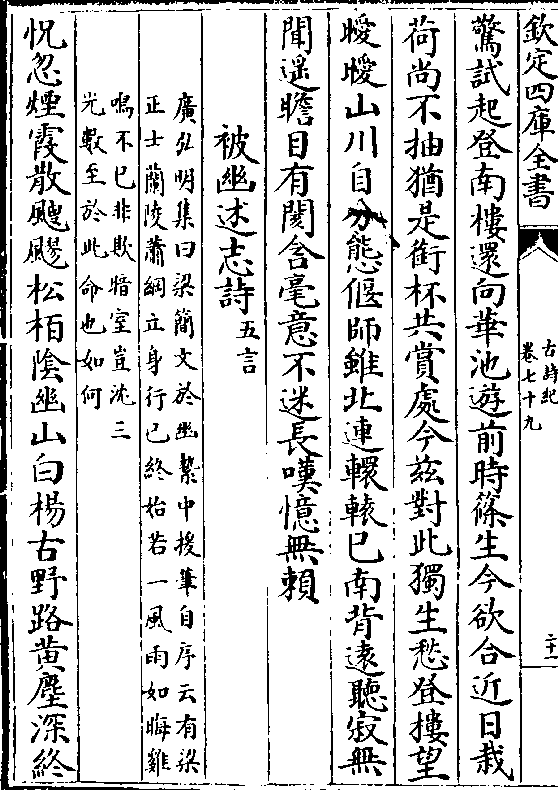 欽定四庫全書
古詩紀
卷七十九
二十一
驚試起登南樓還向華池遊前時篠生今欲合近日栽
荷尚不抽猶是銜杯共賞處今兹對此獨生愁登樓望
曖曖山川自分態偃師雖北連轘轅已南背遠聽寂無
聞遥瞻目有閡含毫意不迷長嘆憶無賴
被幽述志詩五言
廣弘明集曰梁簡文於幽縶中援筆自序云有梁
正士蘭陵蕭綱立身行已終始若一風雨如晦雞
鳴不已非欺暗室豈沈三
光數至於此命也如何
怳忽煙霞散颼飀松栢陰幽山白楊古野路黄塵深終